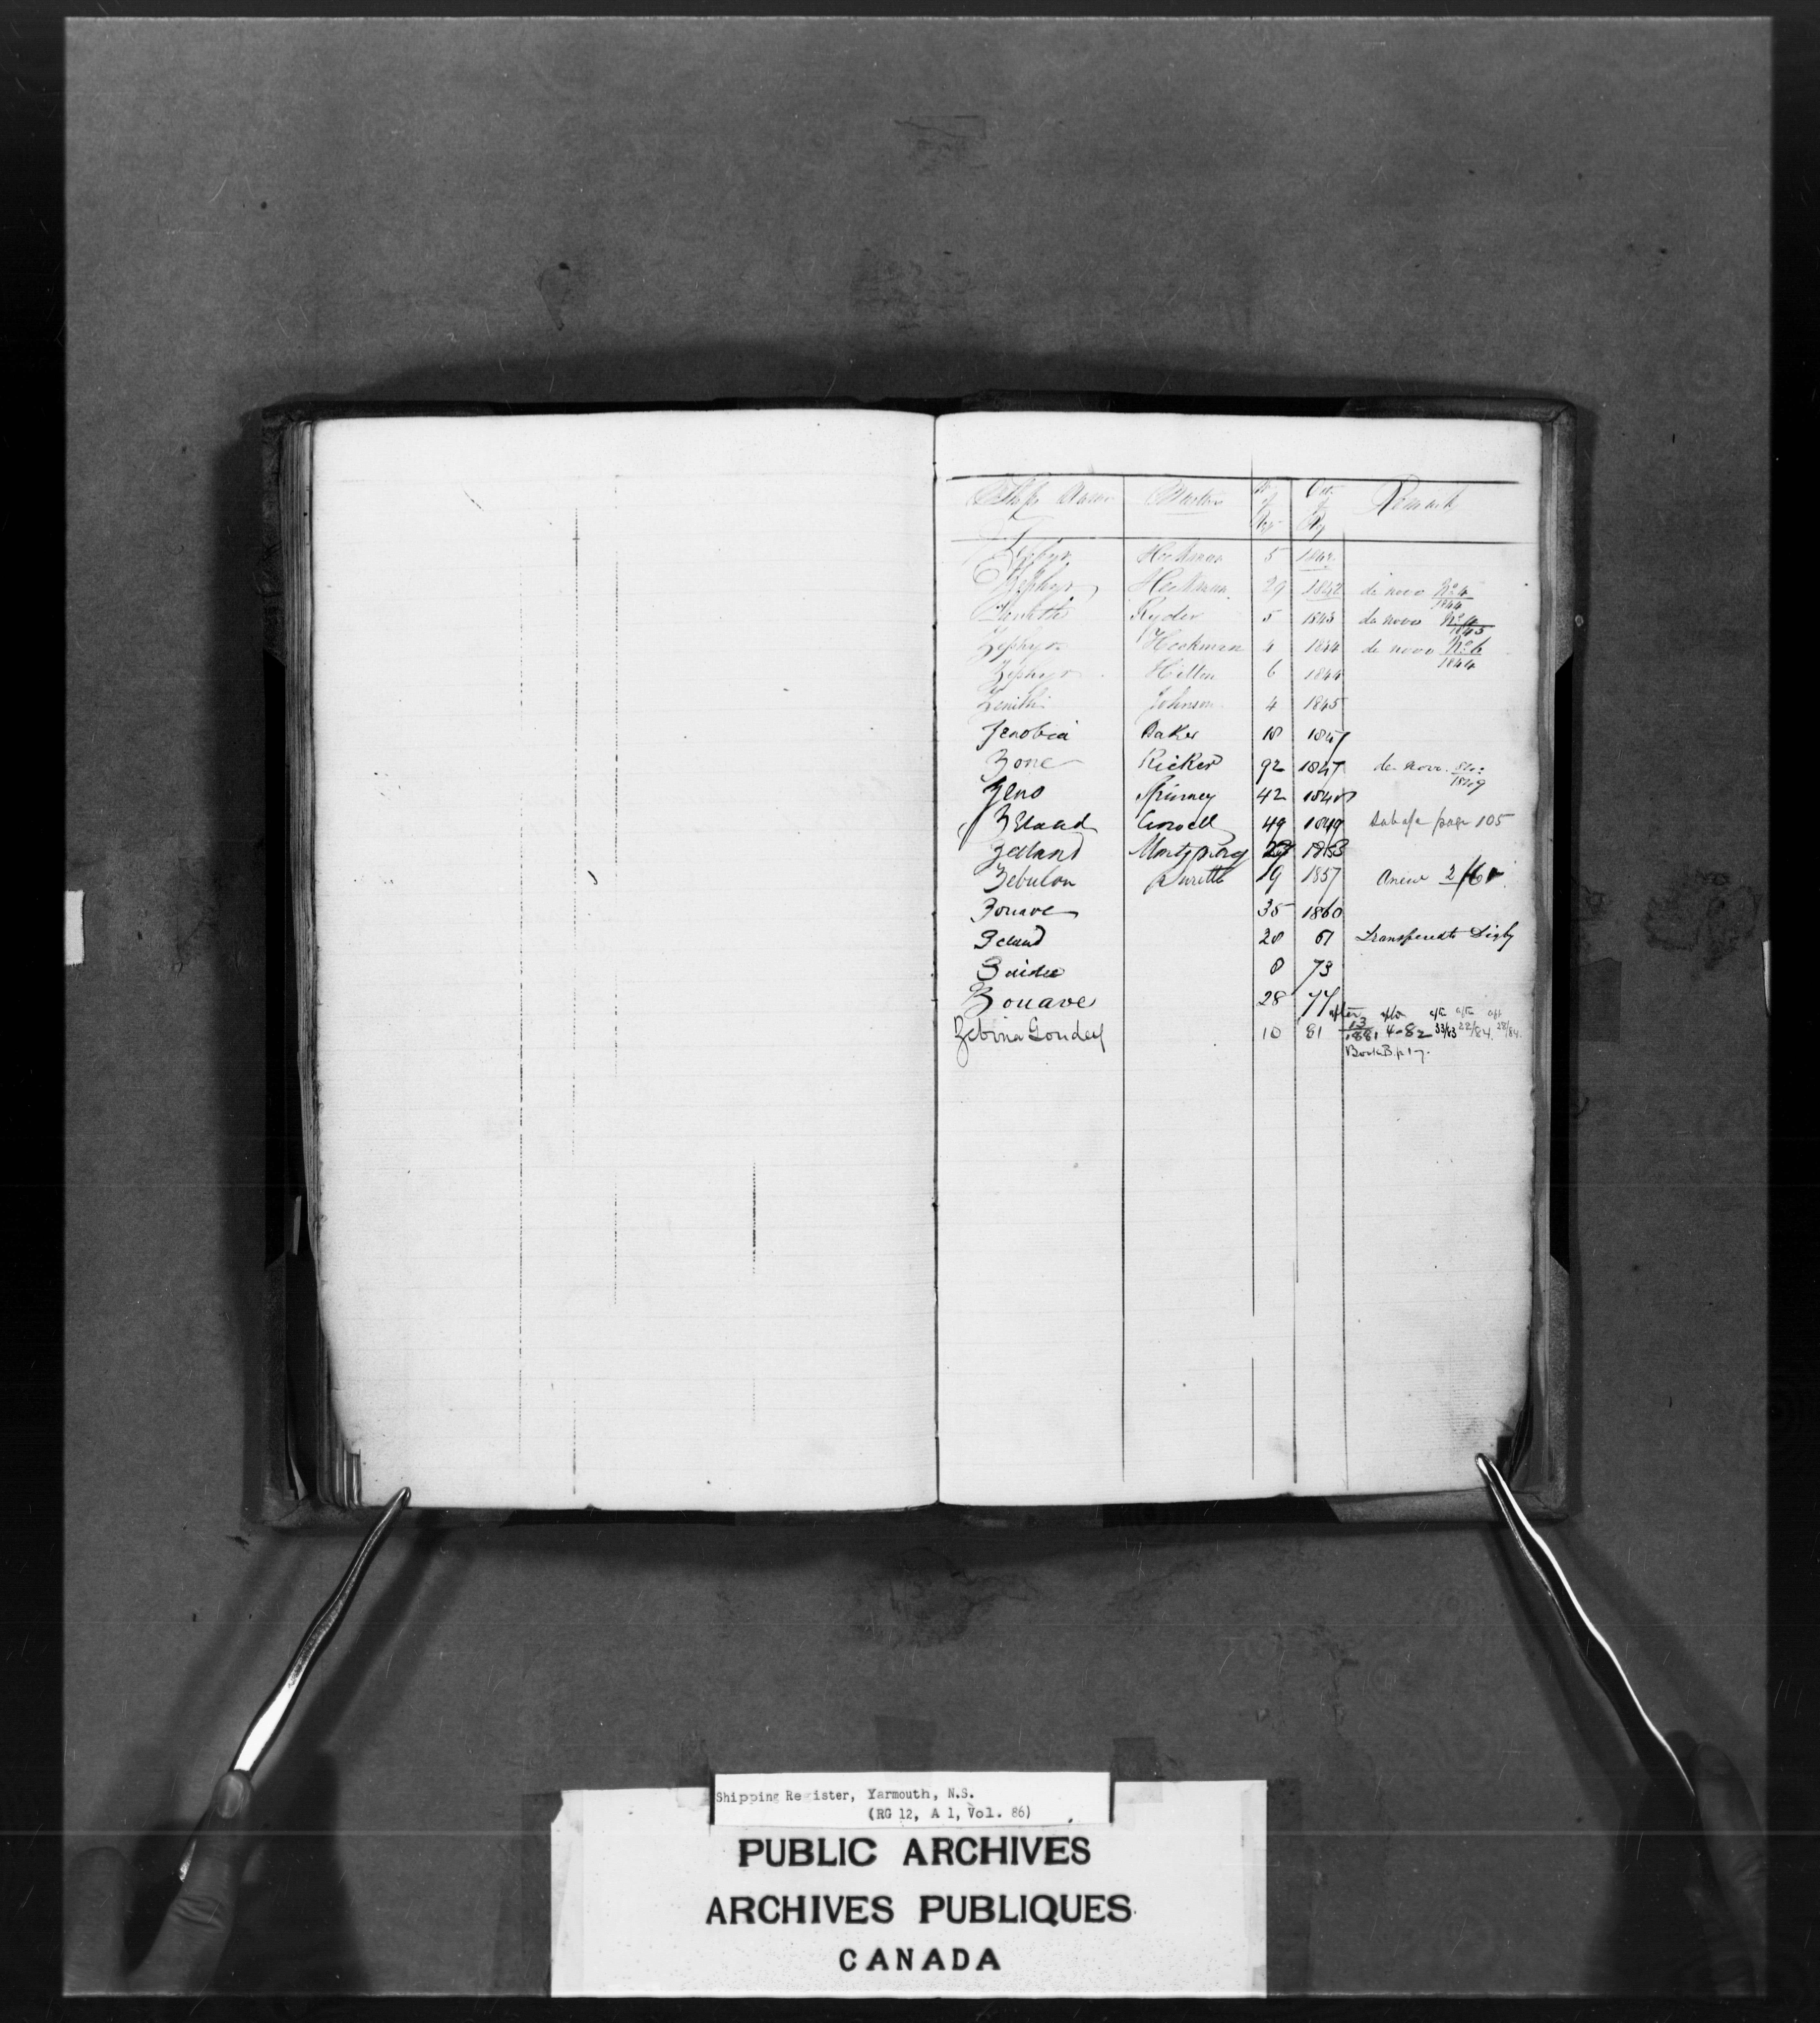 Ships Name Masters No of Reg Date of Reg Remarks
Z
Zephyr Hockman 5 1842
Zephyr Heckman 29 1842 de novo No 4 1844
Zenith Ryder 5 1843 de novo No 4 1845
Zephyr Heckman 4 1844 de novo No 6 1844
Zephyr Hilton 6 1844
Zenith Johnson 4 1845
Zenobia Baker 18 1847
Zone Ricker 92 1847 de novo 1849
Zeno Spinney 42 1848
Zeland Crowell 49 1849 page 105
Zealand 1853
Zebulon 19 1857 Anew
Zouave 35 1860
Zeland 28 61 Transferred to Digby
8 73
Zouave 28 77
Zebina Goudey 10 81 after 13 1881 4-82 33/83 22/84 28/84
Book B. p 17
Shipping Register, Yarmouth, N.S.
(RG 12, A 1, Vol. 86)
PUBLIC ARCHIVES
ARCHIVES PUBLIQUES
CANADA